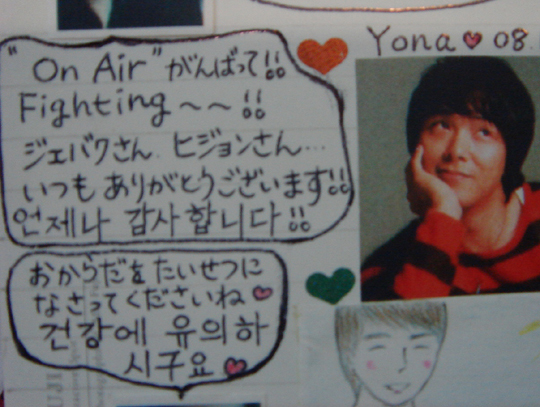 "On Air" がんばって!!
Fighting ~ ~ !!
ジェバクさん. ヒジョンさん...
いつも ありがとうございます!!
언제나 감사합니다!!
Yona♥ 08.
おからだを たいせつに
なさってくださいね♥
건강에 유의하
시구요♥